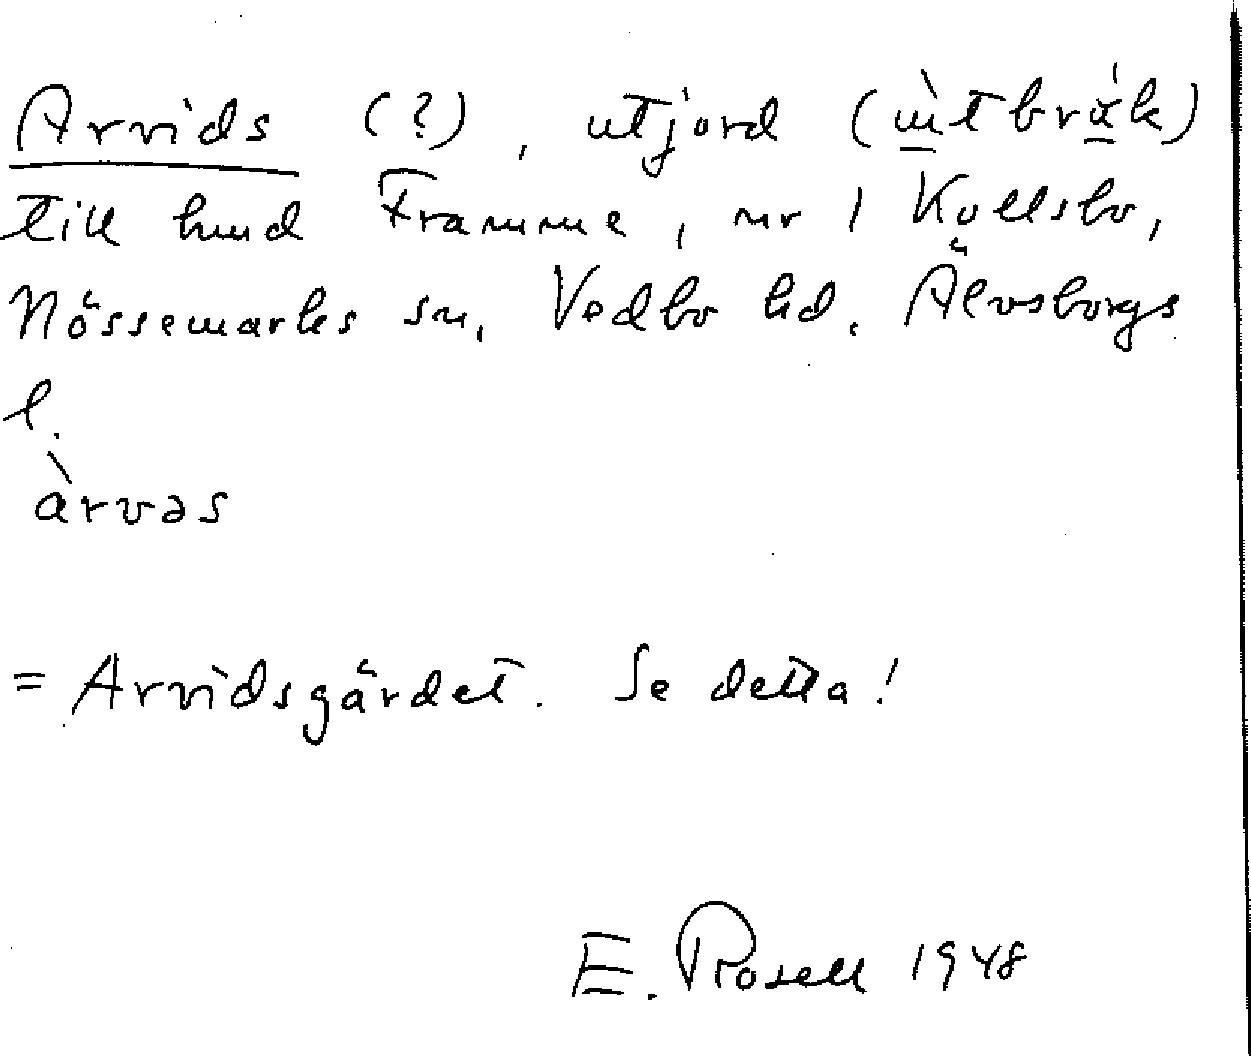 Arvids (?), utjord (ùtbräk)
till hmd Framme, nr 1 Kollsbo,
Nössemarks sn, Vedbo hd. Älvsborgs
l.
àrvəs
= Arvidsgärdet. Se detta!
E. Rosell 1948